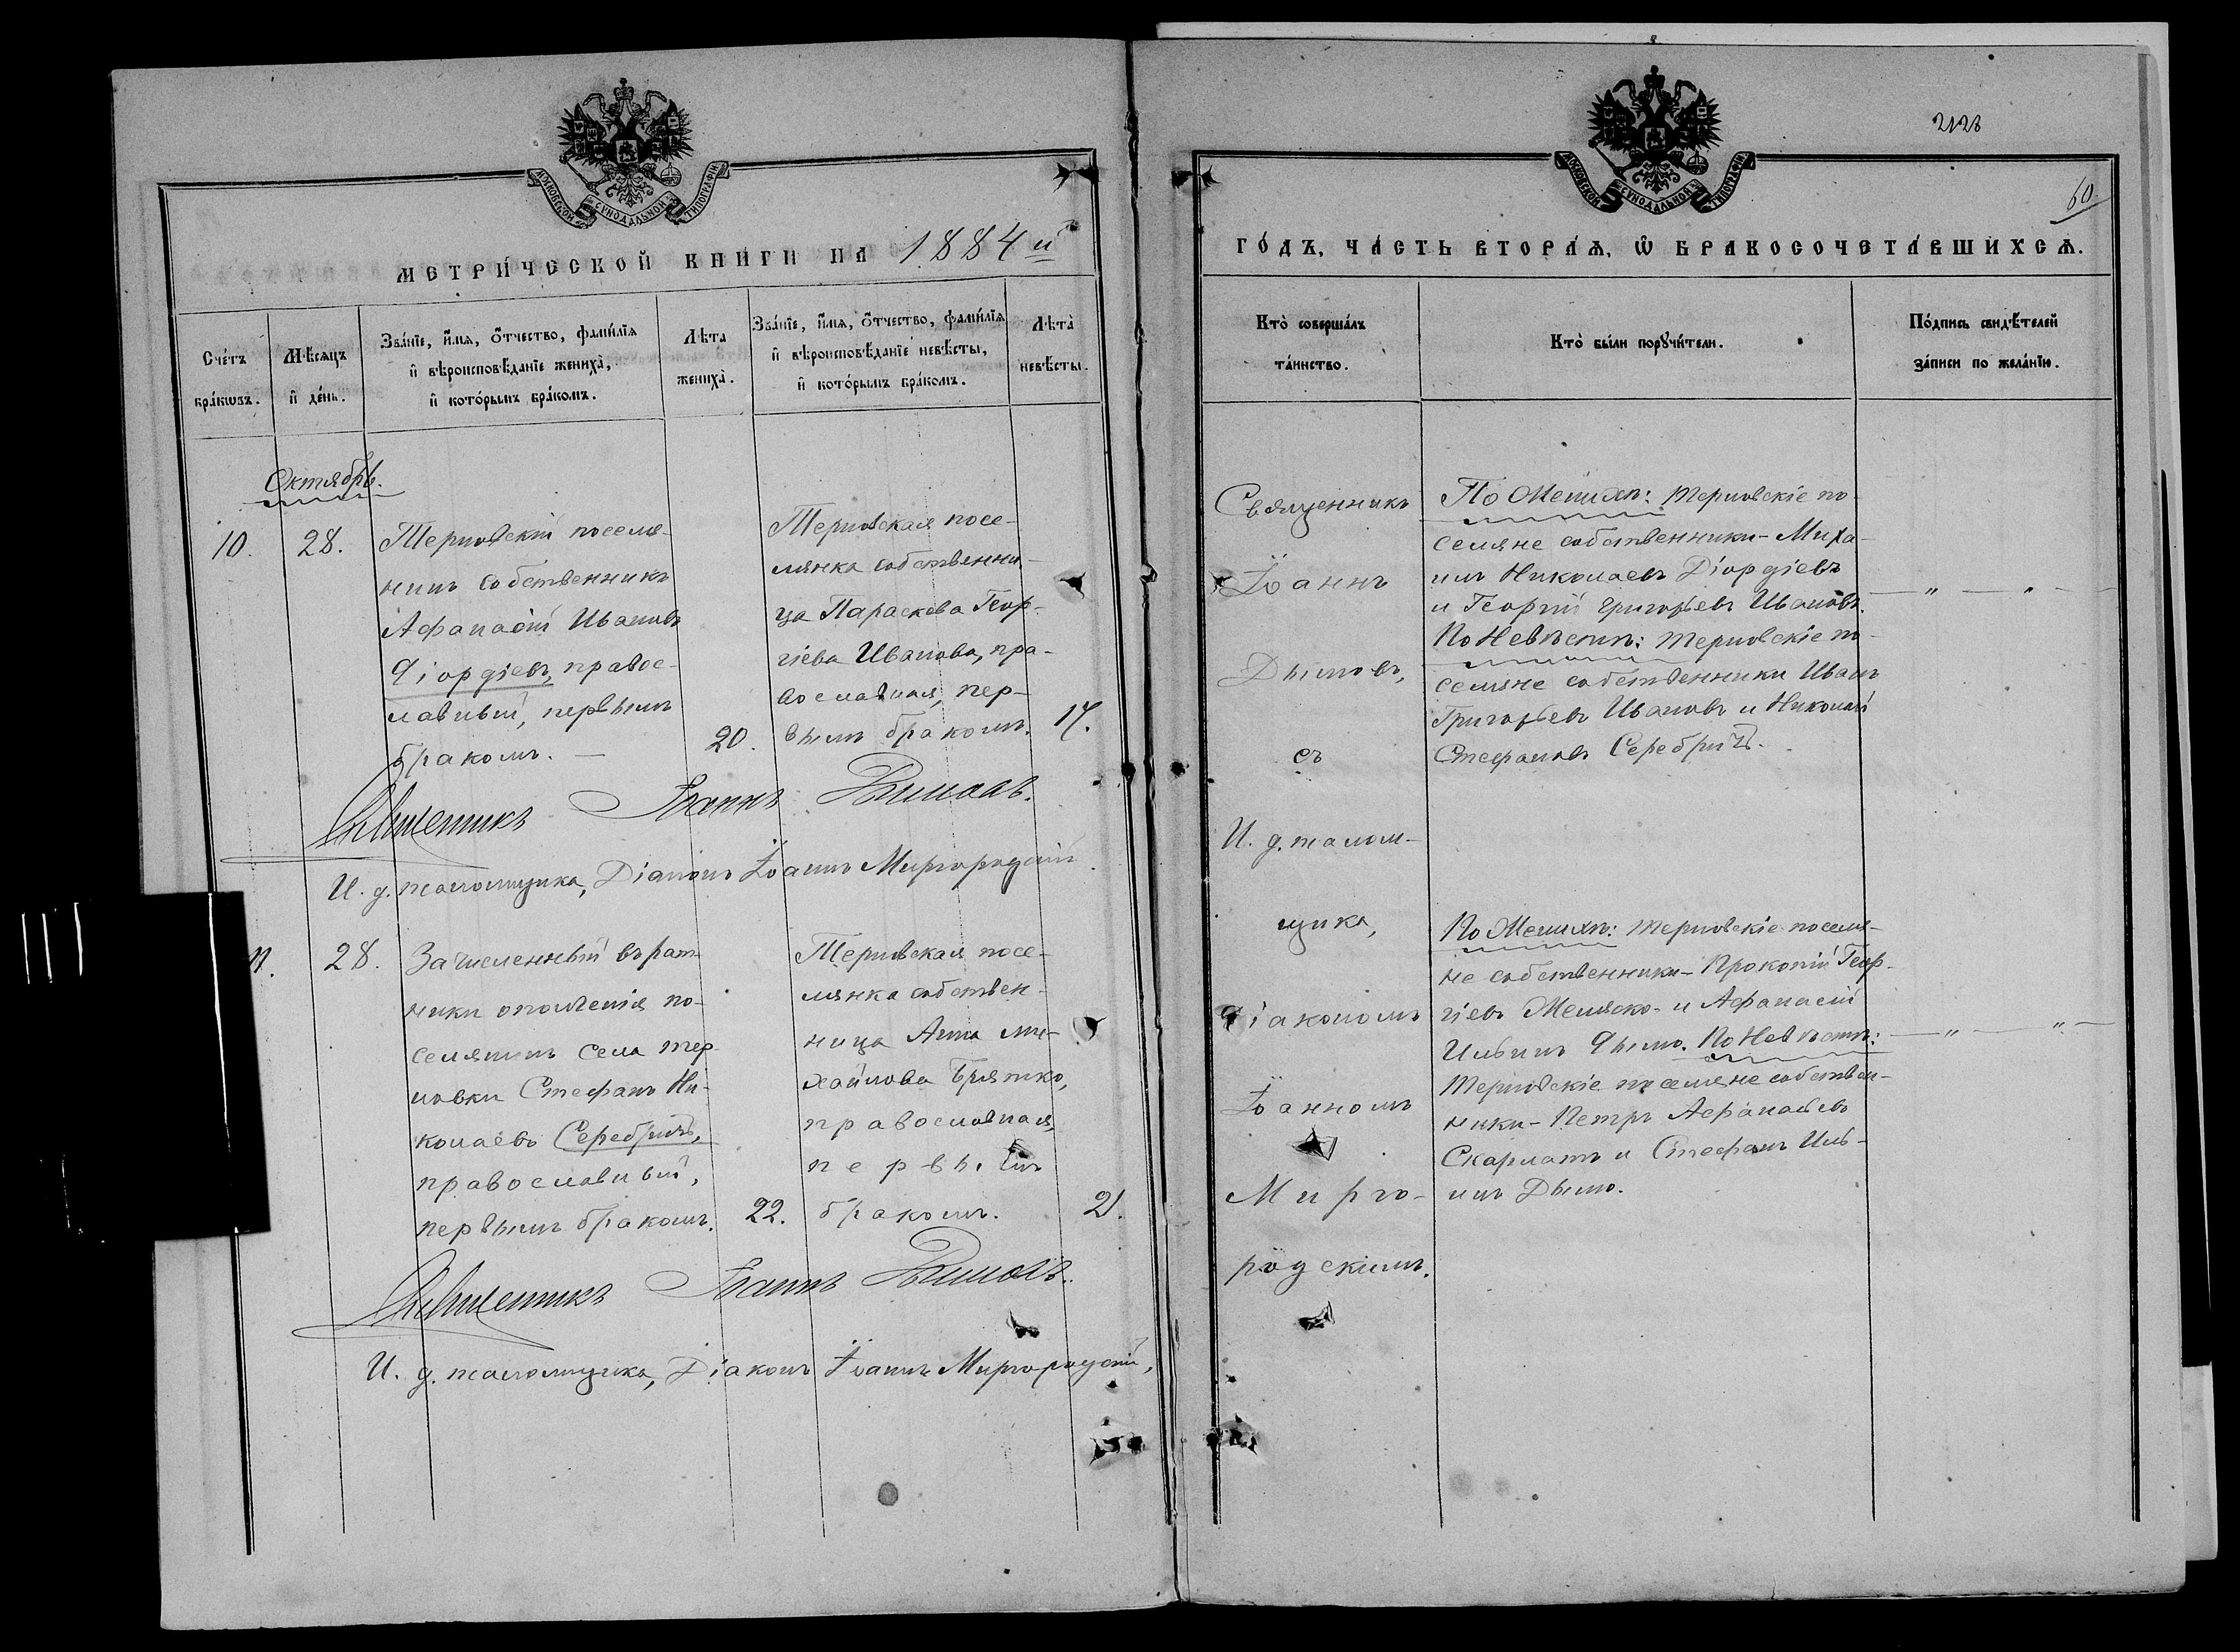 МОСКОВСКОЙ СѴНОДАЛЬНОЙ ТИПОГРАФІИ
МЕТРИ́ЧЕСКОЙ КНИ́ГИ НА 1884 й
Сче́тъ бра́кωвъ.
Мѣ́сяцъ и҆ де́нь.
Зва́нїе, и҆́мя, ѻ҆́тчество, фами́лїя
и҆ вѣроисповѣ́данїе жениха̀,
и҆ кото́рымъ бра́комъ.
Лѣта
жениха̀.
Зва́нїе, и҆́мя, ѻ҆́тчество, фами́лїя
и҆ вѣроисповѣ́данїе невѣ́сты,
и҆ кото́рымъ бра́комъ.
Лѣта̀
невѣ́сты.
Октябрь.
10.
28.
Терновскій поселя-
нинъ собственникъ
Афанасій Ивановъ
Діордіевъ, правос-
лавный, первымъ
бракомъ. —
20.
Терновская посе-
лянка собственни-
ца Параскева Геор-
гіева Иванова, пра-
вославная, пер-
вымъ бракомъ.
17.
Священникъ Іоаннъ Дымовъ.
И. д. псаломщика, Діаконъ Іоаннъ Миргородскій.
11.
28.
Зачисленный въ рат-
ники ополченія по-
селянинъ села Тер-
новки Стефанъ Ни-
колаевъ Серебричъ,
православный,
первымъ бракомъ.
22.
Терновская посе-
лянка собствен-
ница Анна Ми-
хайлова Брятко,
православная,
первымъ
бракомъ.
21.
Священникъ Іоаннъ Дымовъ.
И. д. псаломщика, Діаконъ Іоаннъ Миргородскій,
МОСКОВСКОЙ СѴНОДАЛЬНОЙ ТИПОГРАФІИ
2128
60
ГО́ДЪ, ЧА́СТЬ ВТОРА́Я, Ѡ БРАКОСОЧЕТА́ВШИХСЯ.
Кто̀ соверша́лъ
та́инство.
Кто̀ бы́ли порꙋчи́тели.
По́дпись свидѣ́телей
за́писи по жела́нїю.
Священникъ
Іоаннъ
Дымовъ,
съ
И. д. псалом-
щика,
Діакономъ
Іоанномъ
Мирго-
родскимъ.
По Женихѣ: Терновскіе по-
селяне собственники - Миха-
илъ Николаевъ Діордіевъ
и Георгій Григорьевъ Ивановъ.
По Невѣстѣ: Терновскіе по-
селяне собственники Иванъ
Григорьевъ Ивановъ и Николай
Стефановъ Серебричъ.
— „ — „ — —
По Женихѣ: Терновскіе поселя-
не собственники - Прокопій Геор-
гіевъ Желяско - и Афанасій
Ильинъ Дымо. По Невѣстѣ:
Терновскіе поселяне собствен-
ники - Петръ Афанасьевъ
Скарлатъ и Стефанъ Иль-
инъ Дымо.
— „ — „ —